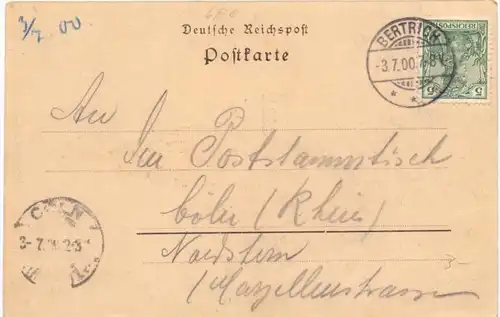 3/7 00
Deutsche Reichspost
Postkarte
BERTRICH
-3.7.00.7-8V.
* *
REICHSPOST
5 5
An
Poststammtisch
Cöln (Rhein)
Nordstern
Marzellenstrasse
CÖLN
3-7.